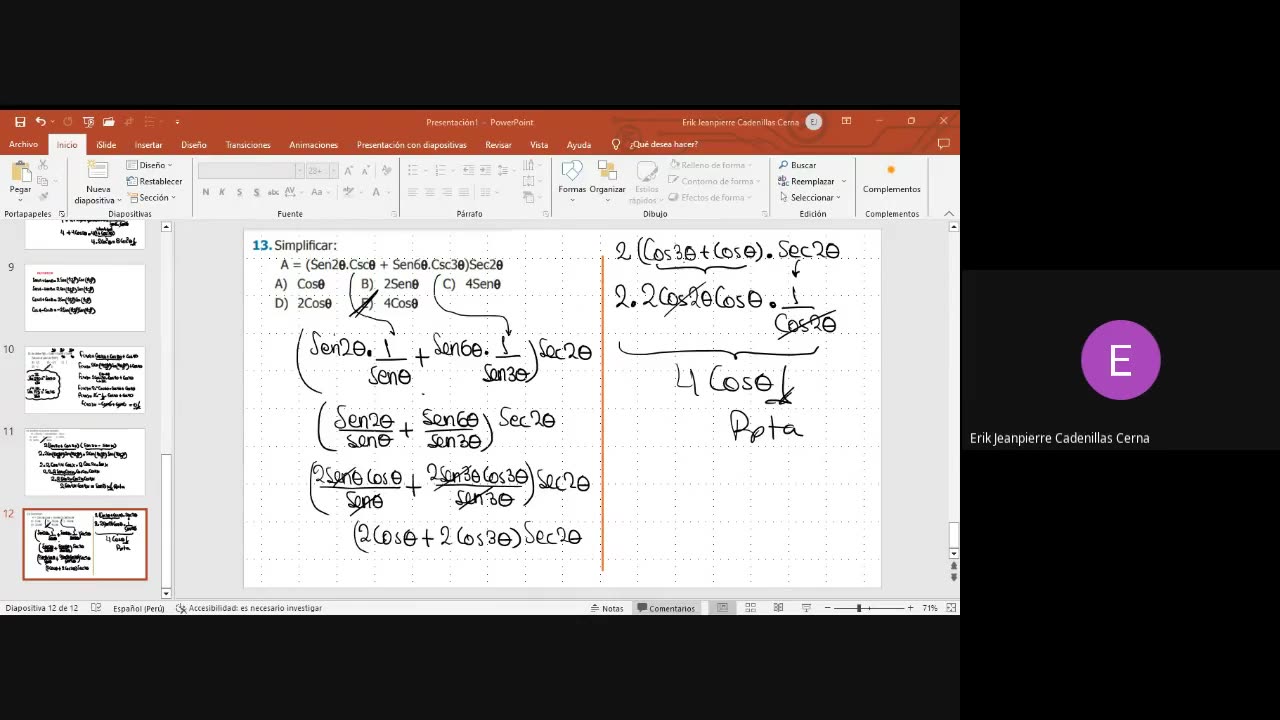 Presentación1 - PowerPoint
Erik Jeanpierre Cadenillas Cerna
EJ
Archivo Inicio iSlide Insertar Diseño Transiciones Animaciones Presentación con diapositivas Revisar Vista Ayuda ¿Qué desea hacer?
Pegar
Portapapeles
Nueva diapositiva
Diseño
Restablecer
Sección
Diapositivas
28+
N K S S abc AV Aa A
Fuente
Párrafo
Formas
Organizar
Estilos rápidos
Relleno de forma
Contorno de forma
Efectos de forma
Dibujo
Buscar
Reemplazar
Seleccionar
Edición
Complementos
Complementos
9
10
11
12
13. Simplificar:
A = (Sen2θ.Cscθ + Sen6θ.Csc3θ)Sec2θ
A) Cosθ B) 2Senθ C) 4Senθ
D) 2Cosθ E) 4Cosθ
(Sen2θ. 1/Senθ + Sen6θ. 1/Sen3θ) Sec2θ
(Sen2θ/Senθ + Sen6θ/Sen3θ) Sec2θ
(2Senθ Cosθ/Senθ + 2Sen3θ Cos3θ/Sen3θ) Sec2θ
(2Cosθ + 2Cos3θ) Sec2θ
2 (Cos3θ + Cosθ) . Sec2θ
2. 2Cos2θ Cosθ . 1/Cos2θ
4 Cosθ
Rpta
Diapositiva 12 de 12
Español (Perú)
Accesibilidad: es necesario investigar
Notas
Comentarios
71%
E
Erik Jeanpierre Cadenillas Cerna